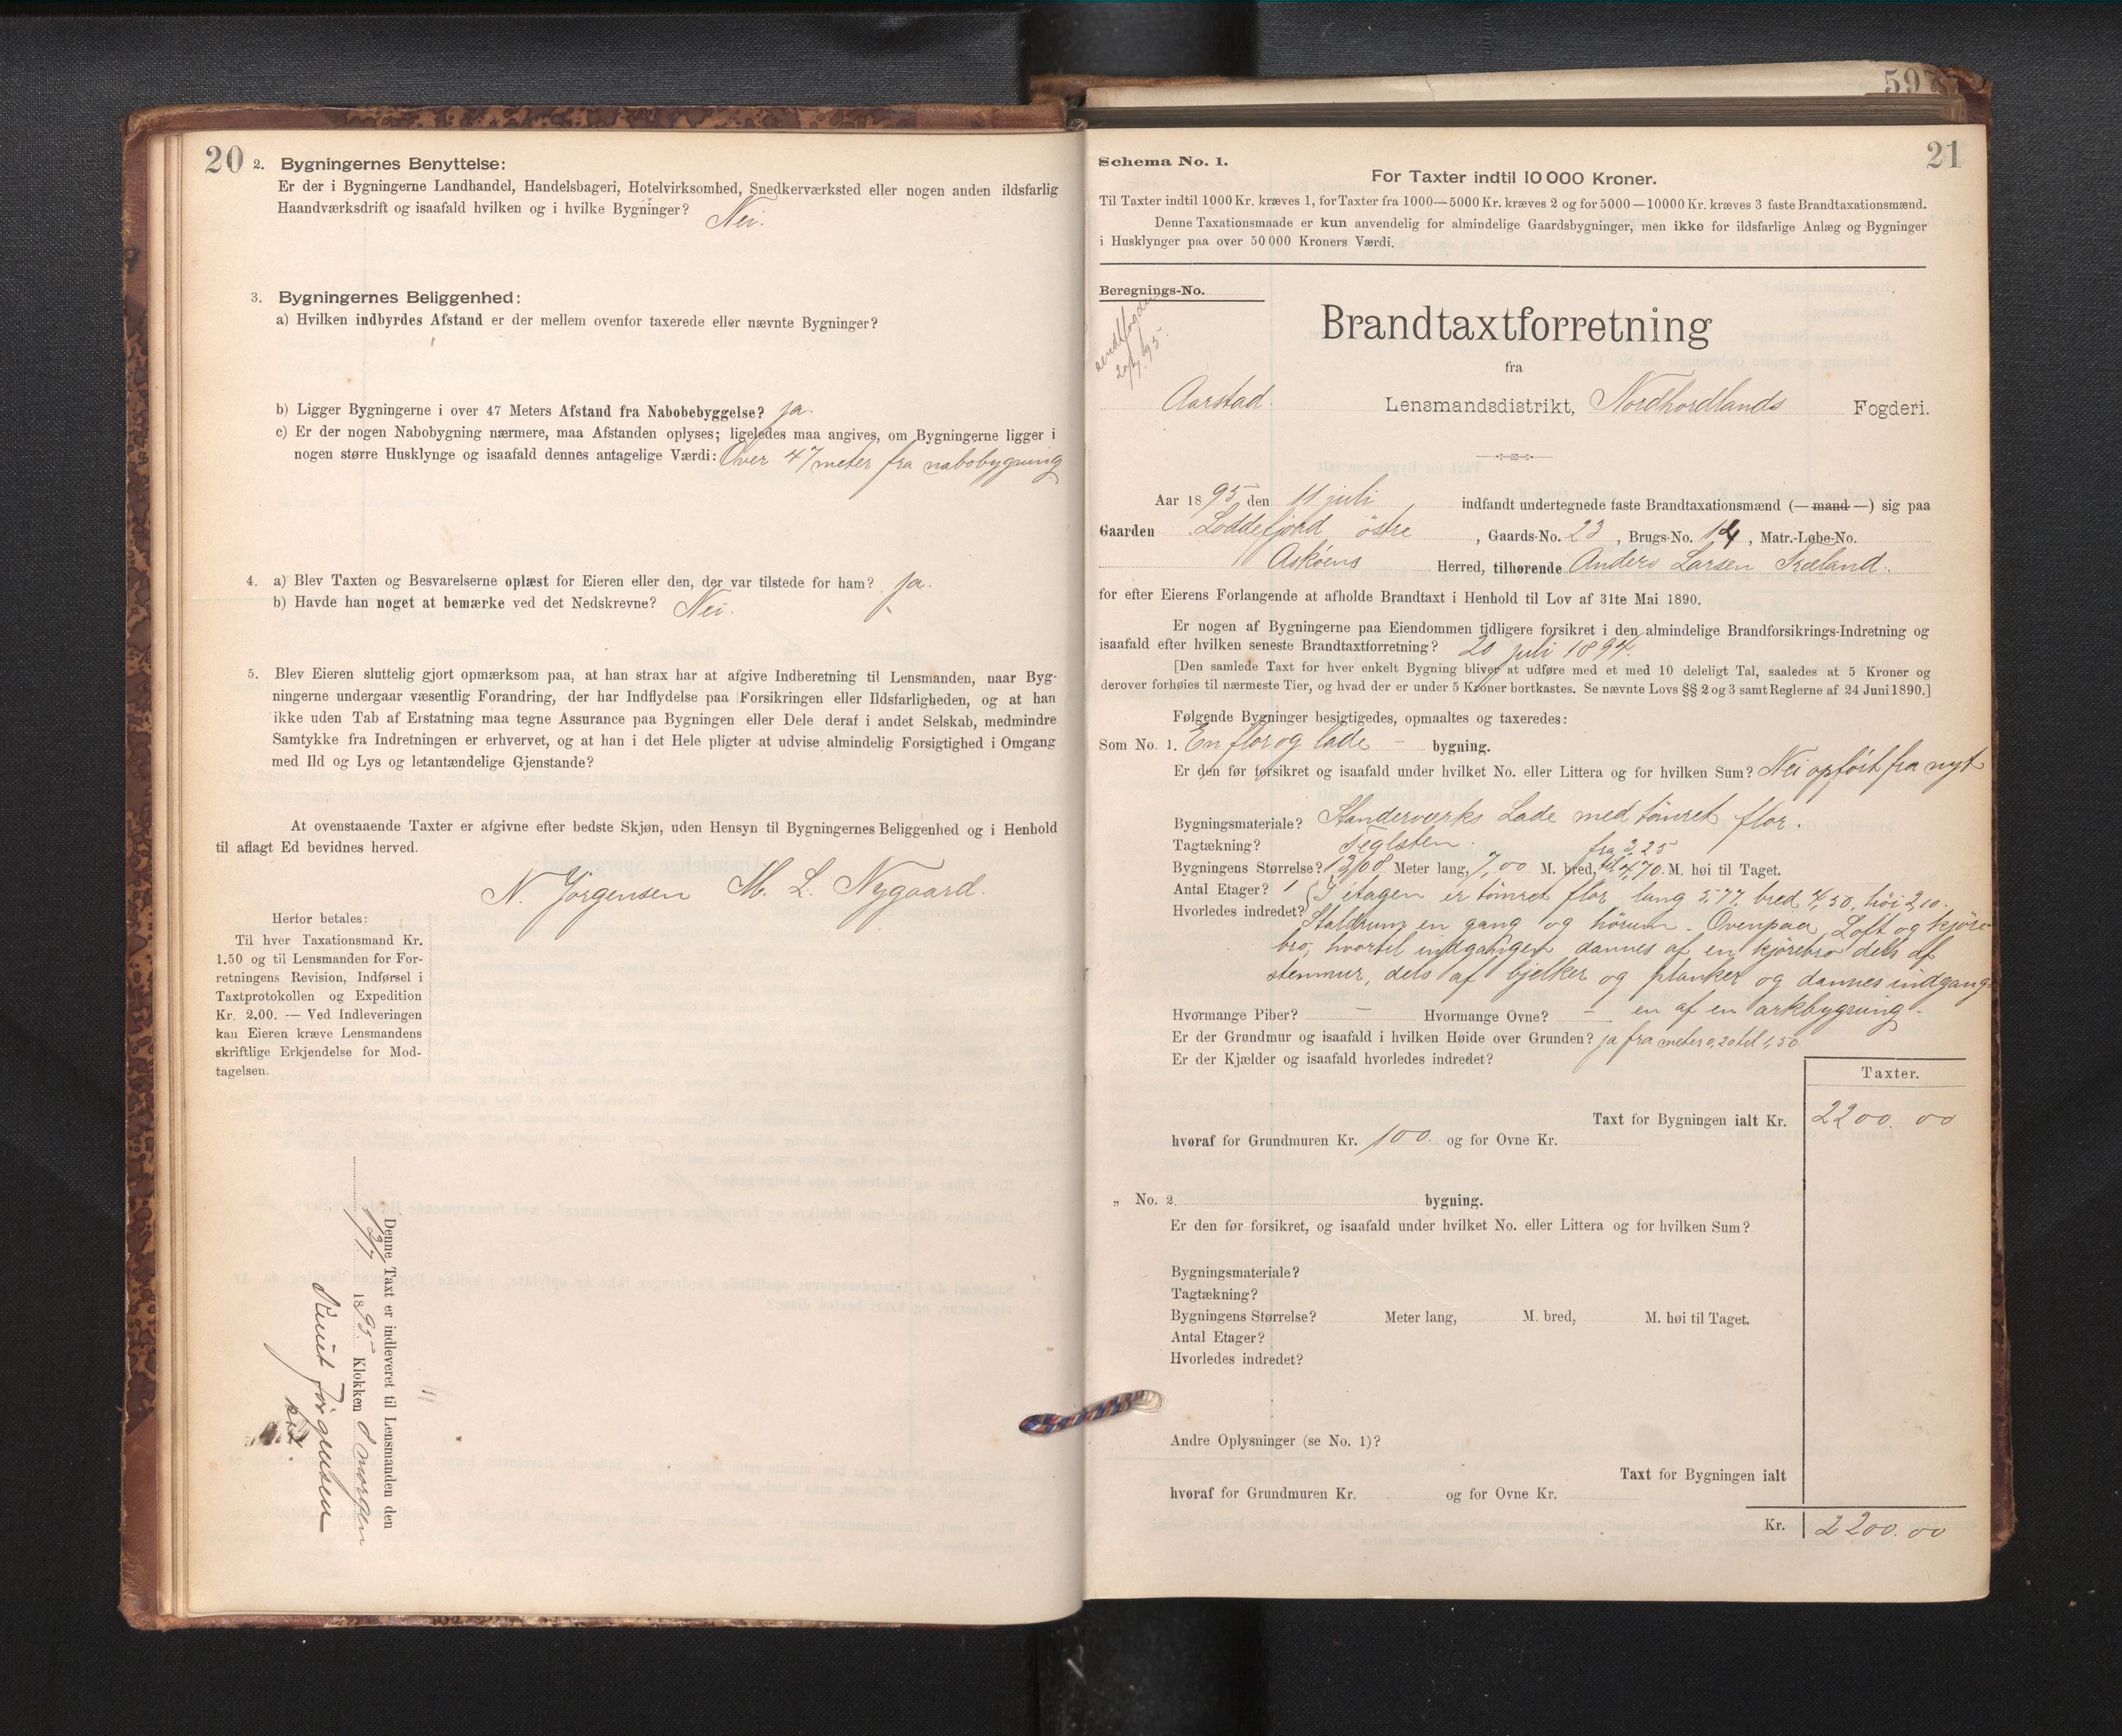 20
2. Bygningernes Benyttelse:
Er der i Bygningerne Landhandel, Handelsbageri, Hotelvirksomhed, Snedkerværksted eller nogen anden ildsfarlig
Haandværksdrift og isaafald hvilken og i hvilke Bygninger? Nei.
3. Bygningernes Beliggenhed:
a) Hvilken indbyrdes Afstand er der mellem ovenfor taxerede eller nævnte Bygninger?
b) Ligger Bygningerne i over 47 Meters Afstand fra Nabobebyggelse? ja.
c) Er der nogen Nabobygning nærmere, maa Afstanden oplyses; ligeledes maa angives, om Bygningerne ligger i
nogen større Husklynge og isaafald dennes antagelige Værdi: Over 47 meter fra nabobygning
4. a) Blev Taxten og Besvarelserne oplæst for Eieren eller den, der var tilstede for ham? ja.
b) Havde han noget at bemærke ved det Nedskrevne? Nei.
5. Blev Eieren sluttelig gjort opmærksom paa, at han strax har at afgive Indberetning til Lensmanden, naar Byg-
ningerne undergaar væsentlig Forandring, der har Indflydelse paa Forsikringen eller Ildsfarligheden, og at han
ikke uden Tab af Erstatning maa tegne Assurance paa Bygningen eller Dele deraf i andet Selskab, medmindre
Samtykke fra Indretningen er erhvervet, og at han i det Hele pligter at udvise almindelig Forsigtighed i Omgang
med Ild og Lys og letantændelige Gjenstande?
At ovenstaaende Taxter er afgivne efter bedste Skjøn, uden Hensyn til Bygningernes Beliggenhed og i Henhold
til aflagt Ed bevidnes herved.
N. Jörgensen M. L. Nygaard.
Herfor betales:
Til hver Taxationsmand Kr.
1.50 og til Lensmanden for For-
retningens Revision, Indførsel i
Taxtprotokollen og Expedition
Kr. 2.00. — Ved Indleveringen
kan Eieren kræve Lensmandens
skriftlige Erkjendelse for Mod-
tagelsen.
Denne Taxt er indleveret til Lensmanden den
13/7 1895. Klokken 8 morgen
Knut Jörgensen
21
Schema No. 1.
For Taxter indtil 10 000 Kroner.
Til Taxter indtil 1000 Kr. kræves 1, for Taxter fra 1000—5000 Kr. kræves 2 og for 5000—10000 Kr. kræves 3 faste Brandtaxationsmænd.
Denne Taxationsmaade er kun anvendelig for almindelige Gaardsbygninger, men ikke for ildsfarlige Anlæg og Bygninger
i Husklynger paa over 50 000 Kroners Værdi.
Beregnings-No.
20/7 95.
Brandtaxtforretning
fra
Aarstad. Lensmandsdistrikt, Nordhordlands Fogderi.
Aar 1895 den 11 juli indfandt undertegnede faste Brandtaxationsmænd (—mand—) sig paa
Gaarden Loddefjord östre, Gaards-No. 23, Brugs-No. 14, Matr.-Løbe-No.
Asköens Herred, tilhørende Anders Larsen Træland.
for efter Eierens Forlangende at afholde Brandtaxt i Henhold til Lov af 31te Mai 1890.
Er nogen af Bygningerne paa Eiendommen tidligere forsikret i den almindelige Brandforsikrings-Indretning og
isaafald efter hvilken seneste Brandtaxtforretning? 20 juli 1894.
[Den samlede Taxt for hver enkelt Bygning bliver at udføre med et med 10 deleligt Tal, saaledes at 5 Kroner og
derover forhøies til nærmeste Tier, og hvad der er under 5 Kroner bortkastes. Se nævnte Lovs §§ 2 og 3 samt Reglerne af 24 Juni 1890.]
Følgende Bygninger besigtigedes, opmaaltes og taxeredes:
Som No. 1. En flor og lade - bygning.
Er den før forsikret og isaafald under hvilket No. eller Littera og for hvilken Sum? Nei opfört fra nyt
Bygningsmateriale? Standerværks Lade med tömret flor.
Tagtækning? Teglsten.
fra 3,25
Bygningens Størrelse? 13,08 Meter lang, 7,00 M. bred, til 4,70 M. høi til Taget.
Antal Etager? 1 I etagen er tömret flor lang 5,77, bred 4,50, höi 2,10.
Hvorledes indredet? Staldrum en gang og hörum. Ovenpaa Loft og kjöre-
bro, hvortil indgangen dannes af en kjörebro dels af
stenmur, dels af bjelker og planker og dannes indgang-
en af en arkbygning.
Hvormange Piber? — Hvormange Ovne? —
Er der Grundmur og isaafald i hvilken Høide over Grunden? ja fra meter 0,20 til 1,50
Er der Kjælder og isaafald hvorledes indredet?
Taxter.
Taxt for Bygningen ialt Kr. 2200.00
hvoraf for Grundmuren Kr. 100. og for Ovne Kr.
„ No. 2 bygning.
Er den før forsikret, og isaafald under hvilket No. eller Littera og for hvilken Sum?
Bygningsmateriale?
Tagtækning?
Bygningens Størrelse? Meter lang, M. bred, M. høi til Taget.
Antal Etager?
Hvorledes indredet?
Andre Oplysninger (se No. 1)?
Taxt for Bygningen ialt
hvoraf for Grundmuren Kr. og for Ovne Kr.
Kr. 2200.00